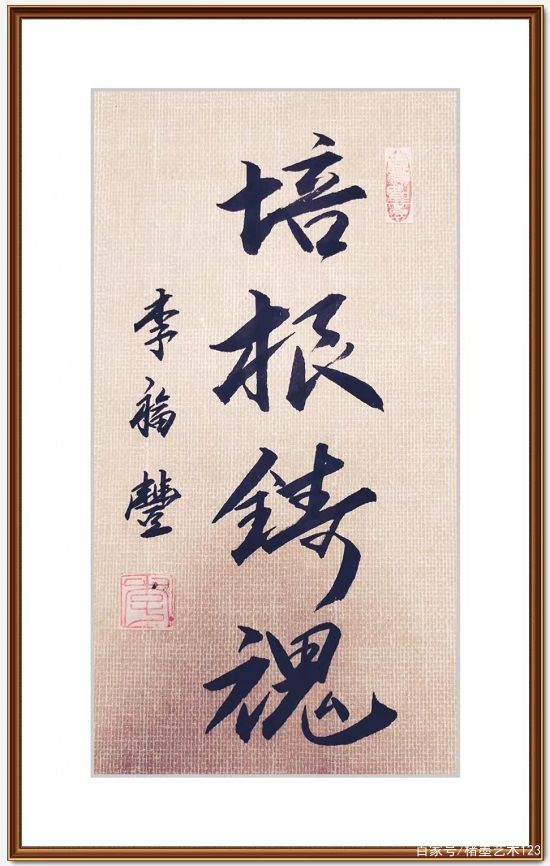 培根鑄魂
李福豐
百家号/楮墨艺术123